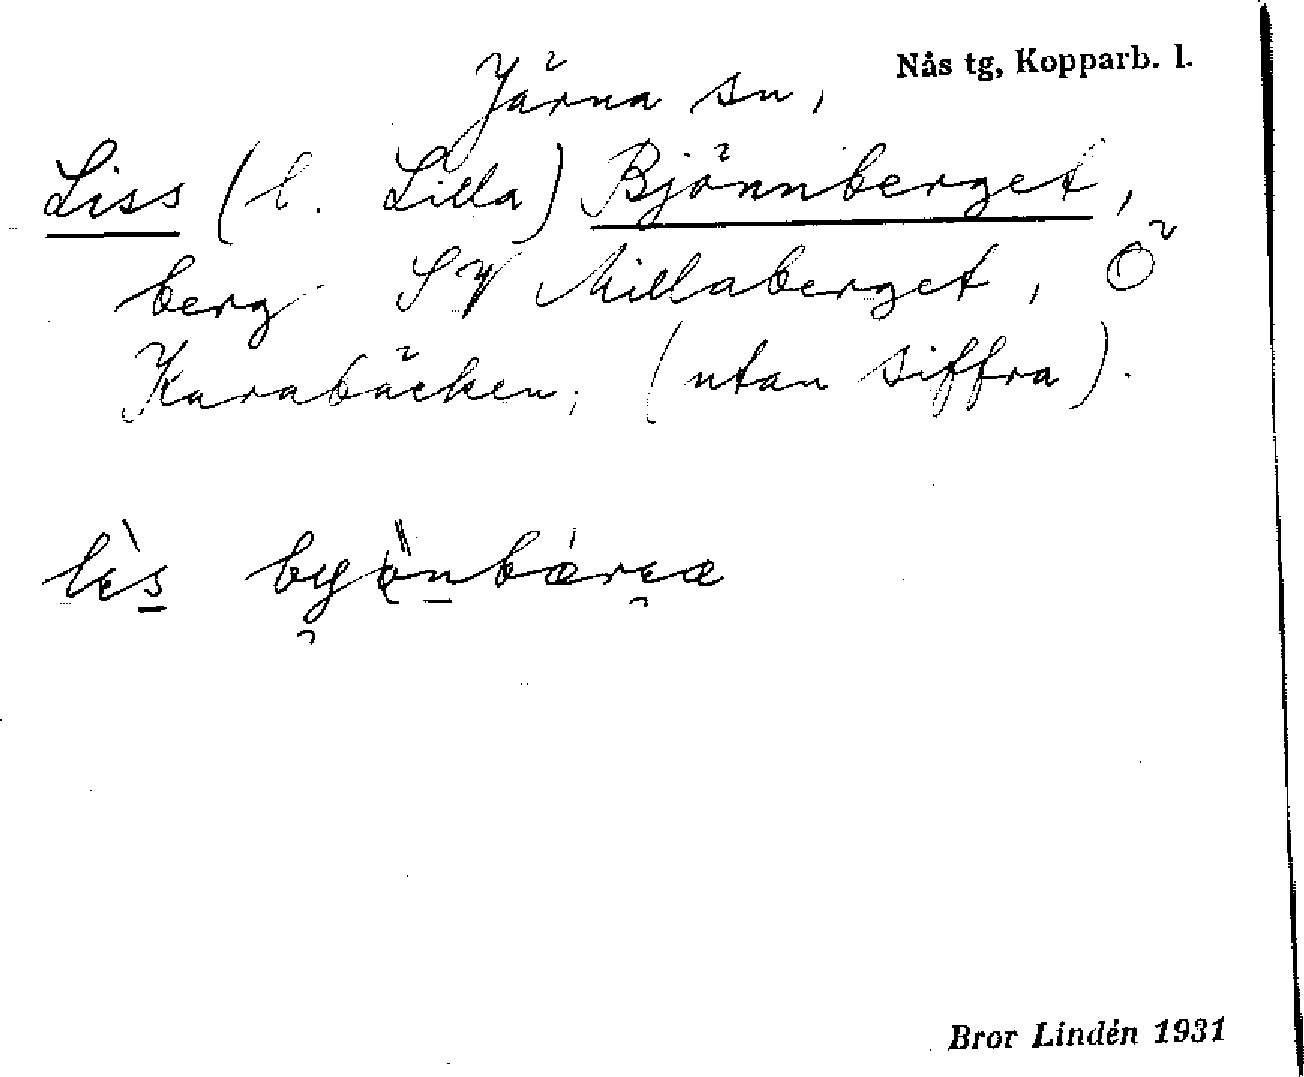 Nås tg, Kopparb. l.
Järna sn,
Liss (l. Lilla) Björnnberget,
berg SV Millaberget, Ö
Karabäcken, (utan siffra).
Bror Lindén 1931